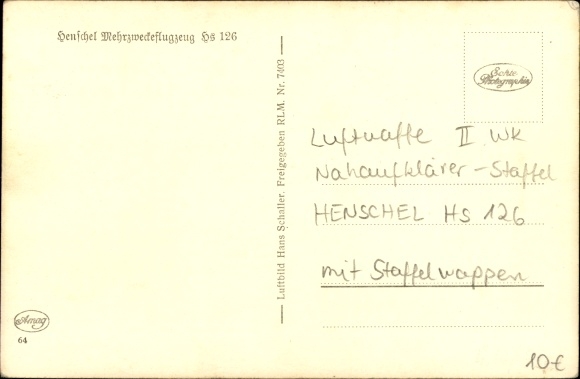 Henschel Mehrzweckeflugzeug Hs 126
Luftbild Hans Schaller. Freigegeben RLM. Nr. 7403
Echte
Photographie
Luftwaffe II WK
Nahaufklärer-Staffel
HENSCHEL Hs 126
mit Staffelwappen
Amag
64
10€